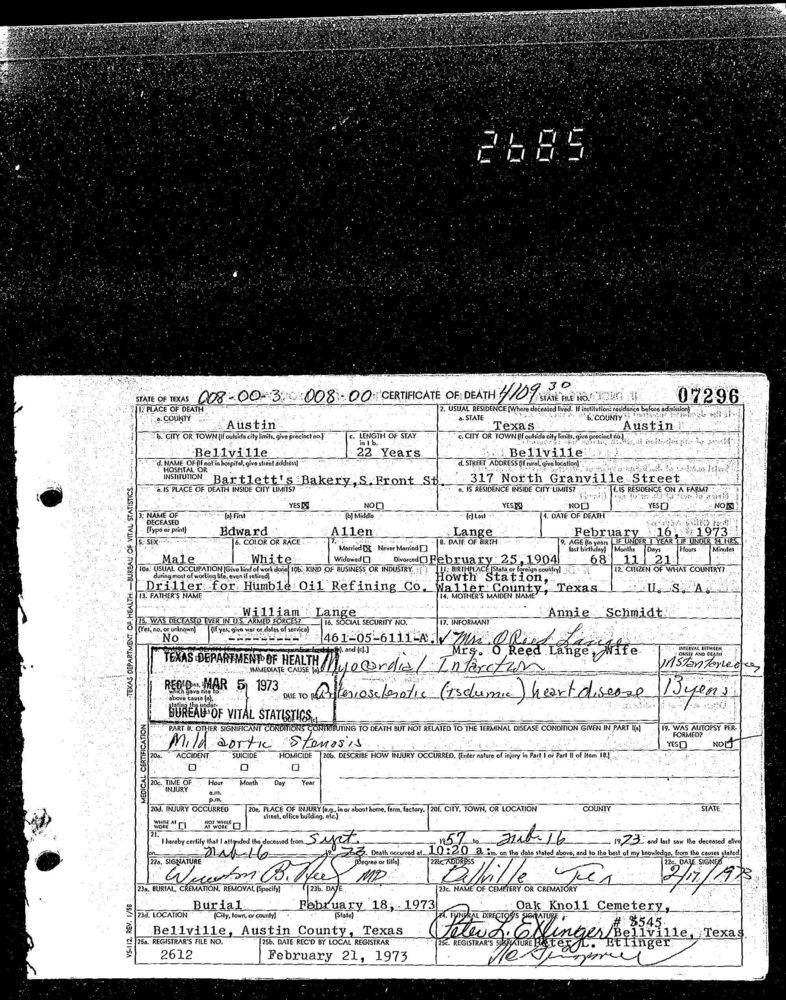 2685
STATE OF TEXAS 008-00-3 008-00 CERTIFICATE OF DEATH 4109 30 STATE FILE NO. 07296
1. PLACE OF DEATH 2. USUAL RESIDENCE (Where deceased lived. If institution: residence before admission)
a. COUNTY Austin a. STATE Texas b. COUNTY Austin
b. CITY OR TOWN (If outside city limits, give precinct no.) c. LENGTH OF STAY in 1 b. c. CITY OR TOWN (If outside city limits, give precinct no.)
Bellville 22 Years Bellville
d. NAME OF (If not in hospital, give street address) HOSPITAL OR INSTITUTION d. STREET ADDRESS (If rural, give location)
Bartlett's Bakery, S. Front St. 317 North Granville Street
e. IS PLACE OF DEATH INSIDE CITY LIMITS? e. IS RESIDENCE INSIDE CITY LIMITS? f. IS RESIDENCE ON A FARM?
YES ☒ NO ☐ YES ☒ NO ☐ YES ☐ NO ☒
3. NAME OF DECEASED (Type or print) (a) First (b) Middle (c) Last 4. DATE OF DEATH
Edward Allen Lange February 16, 1973
5. SEX 6. COLOR OR RACE 7. Married ☒ Never Married ☐ 8. DATE OF BIRTH 9. AGE (In years last birthday) IF UNDER 1 YEAR IF UNDER 24 HRS.
Months Days Hours Minutes
Male White Widowed ☐ Divorced ☐ February 25, 1904 68 11 21
10a. USUAL OCCUPATION (Give kind of work done during most of working life, even if retired) 10b. KIND OF BUSINESS OR INDUSTRY 11. BIRTHPLACE (State or foreign country) 12. CITIZEN OF WHAT COUNTRY?
Howth Station,
Driller for Humble Oil Refining Co. Waller County, Texas U. S. A.
13. FATHER'S NAME 14. MOTHER'S MAIDEN NAME
William Lange Annie Schmidt
15. WAS DECEASED EVER IN U.S. ARMED FORCES? 16. SOCIAL SECURITY NO. 17. INFORMANT
(Yes, no, or unknown) (If yes, give war or dates of service)
No ---------- 461-05-6111-A. Mrs O Reed Lange
Mrs. O Reed Lange, Wife
INTERVAL BETWEEN ONSET AND DEATH
TEXAS DEPARTMENT OF HEALTH
IMMEDIATE CAUSE (a) Myocardial Infarction instantaneous
REC'D MAR 5 1973
which gave rise to above cause (a), stating the under-
DUE TO (b) Arteriosclerotic (ischemic) heart disease 13 years
BUREAU OF VITAL STATISTICS
PART II. OTHER SIGNIFICANT CONDITIONS CONTRIBUTING TO DEATH BUT NOT RELATED TO THE TERMINAL DISEASE CONDITION GIVEN IN PART I(a) 19. WAS AUTOPSY PERFORMED?
Mild aortic Stenosis YES ☐ NO ☑
20a. ACCIDENT SUICIDE HOMICIDE 20b. DESCRIBE HOW INJURY OCCURRED. (Enter nature of injury in Part I or Part II of item 18.)
☐ ☐ ☐
20c. TIME OF INJURY Hour Month Day Year
a.m.
p.m.
20d. INJURY OCCURRED 20e. PLACE OF INJURY (e.g., in or about home, farm, factory, street, office building, etc.) 20f. CITY, TOWN, OR LOCATION COUNTY STATE
WHILE AT WORK ☐ NOT WHILE AT WORK ☐
21. I hereby certify that I attended the deceased from Sept. 1957 to Feb 16 1973 and last saw the deceased alive
on Feb 16 1973. Death occurred at 10:20 a.m. on the date stated above, and to the best of my knowledge, from the causes stated.
22a. SIGNATURE (Degree or title) 22b. ADDRESS 22c. DATE SIGNED
MD Bellville Tex 2/17/1973
23a. BURIAL, CREMATION, REMOVAL (Specify) 23b. DATE 23c. NAME OF CEMETERY OR CREMATORY
Burial February 18, 1973 Oak Knoll Cemetery,
23d. LOCATION (City, town, or county) (State) 24. FUNERAL DIRECTOR'S SIGNATURE # 3545
Bellville, Austin County, Texas Peter L. Etlinger Bellville, Texas
25a. REGISTRAR'S FILE NO. 25b. DATE REC'D BY LOCAL REGISTRAR 25c. REGISTRAR'S SIGNATURE Peter L. Etlinger
2612 February 21, 1973
VS-112, REV. 1/58
MEDICAL CERTIFICATION
TEXAS DEPARTMENT OF HEALTH — BUREAU OF VITAL STATISTICS